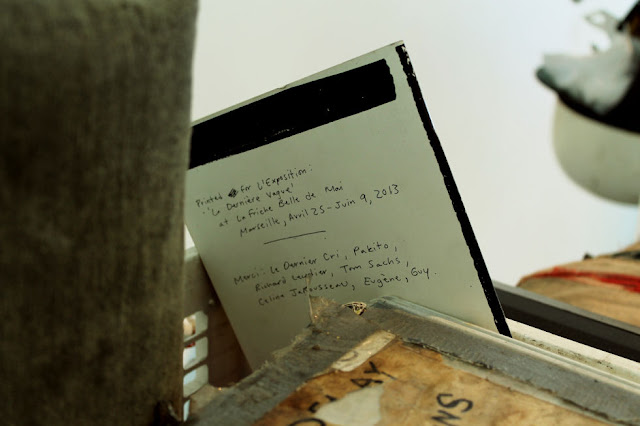 Printed for L'Exposition:
'La Dernière Vague'
at La Friche Belle de Mai
Marseille, Avril 25 - Juin 9, 2013
Merci: Le Dernier Cri, Pakito,
Richard, Tom Sachs,
Celine, Eugène, Guy.
LAY
NS